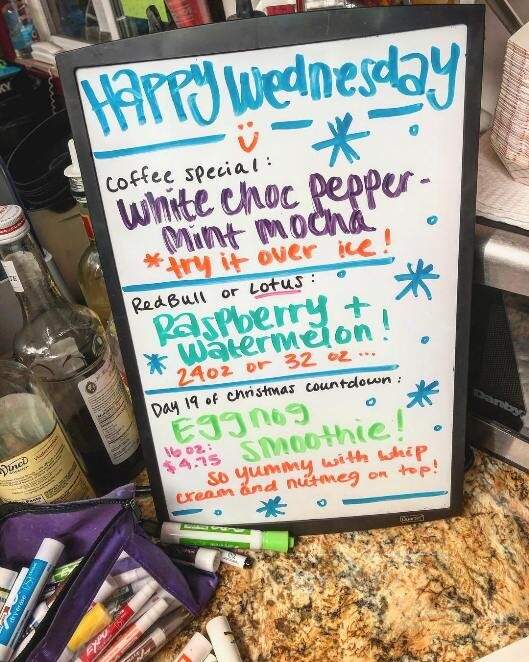 Happy Wednesday
Coffee special:
White choc pepper-
mint mocha
*try it over ice!
RedBull or Lotus:
Raspberry +
watermelon!
24oz or 32 oz ...
Day 19 of christmas countdown:
Eggnog
smoothie!
16 oz:
$4.75
so yummy with whip
cream and nutmeg on top!
Danby
Vinci
EXPO
Quartet